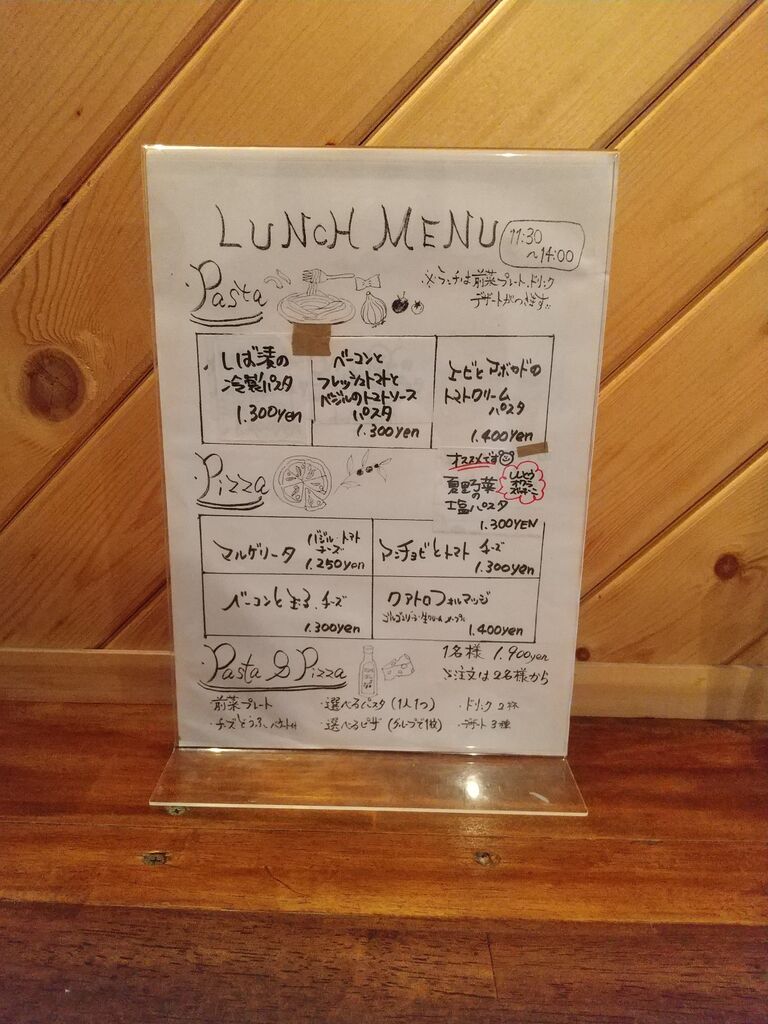 LUNCH MENU
11:30
~14:00
Pasta
※ランチは前菜プレート、ドリンク
デザートがつきます。
しば漬の
冷製パスタ
1.300yen
ベーコンと
フレッシュトマトと
バジルのトマトソース
パスタ
1.300yen
エビとアボカドの
トマトクリーム
パスタ
1.400yen
オススメです
夏野菜
の
塩パスタ
ししとう
オクラ
ズッキーニ
1.300YEN
Pizza
マルゲリータ
バジル・トマト
チーズ
1.250yen
アンチョビとトマト チーズ
1.300yen
ベーコンと玉子、チーズ
1.300yen
クアトロフォルマッジ
1.400yen
Pasta & Pizza
1名様 1.900yen
ご注文は2名様から
前菜プレート
・チーズとうふ、
・選べるパスタ (1人1つ)
・選べるピザ (グループで1枚)
・ドリンク2杯
・デザート3種